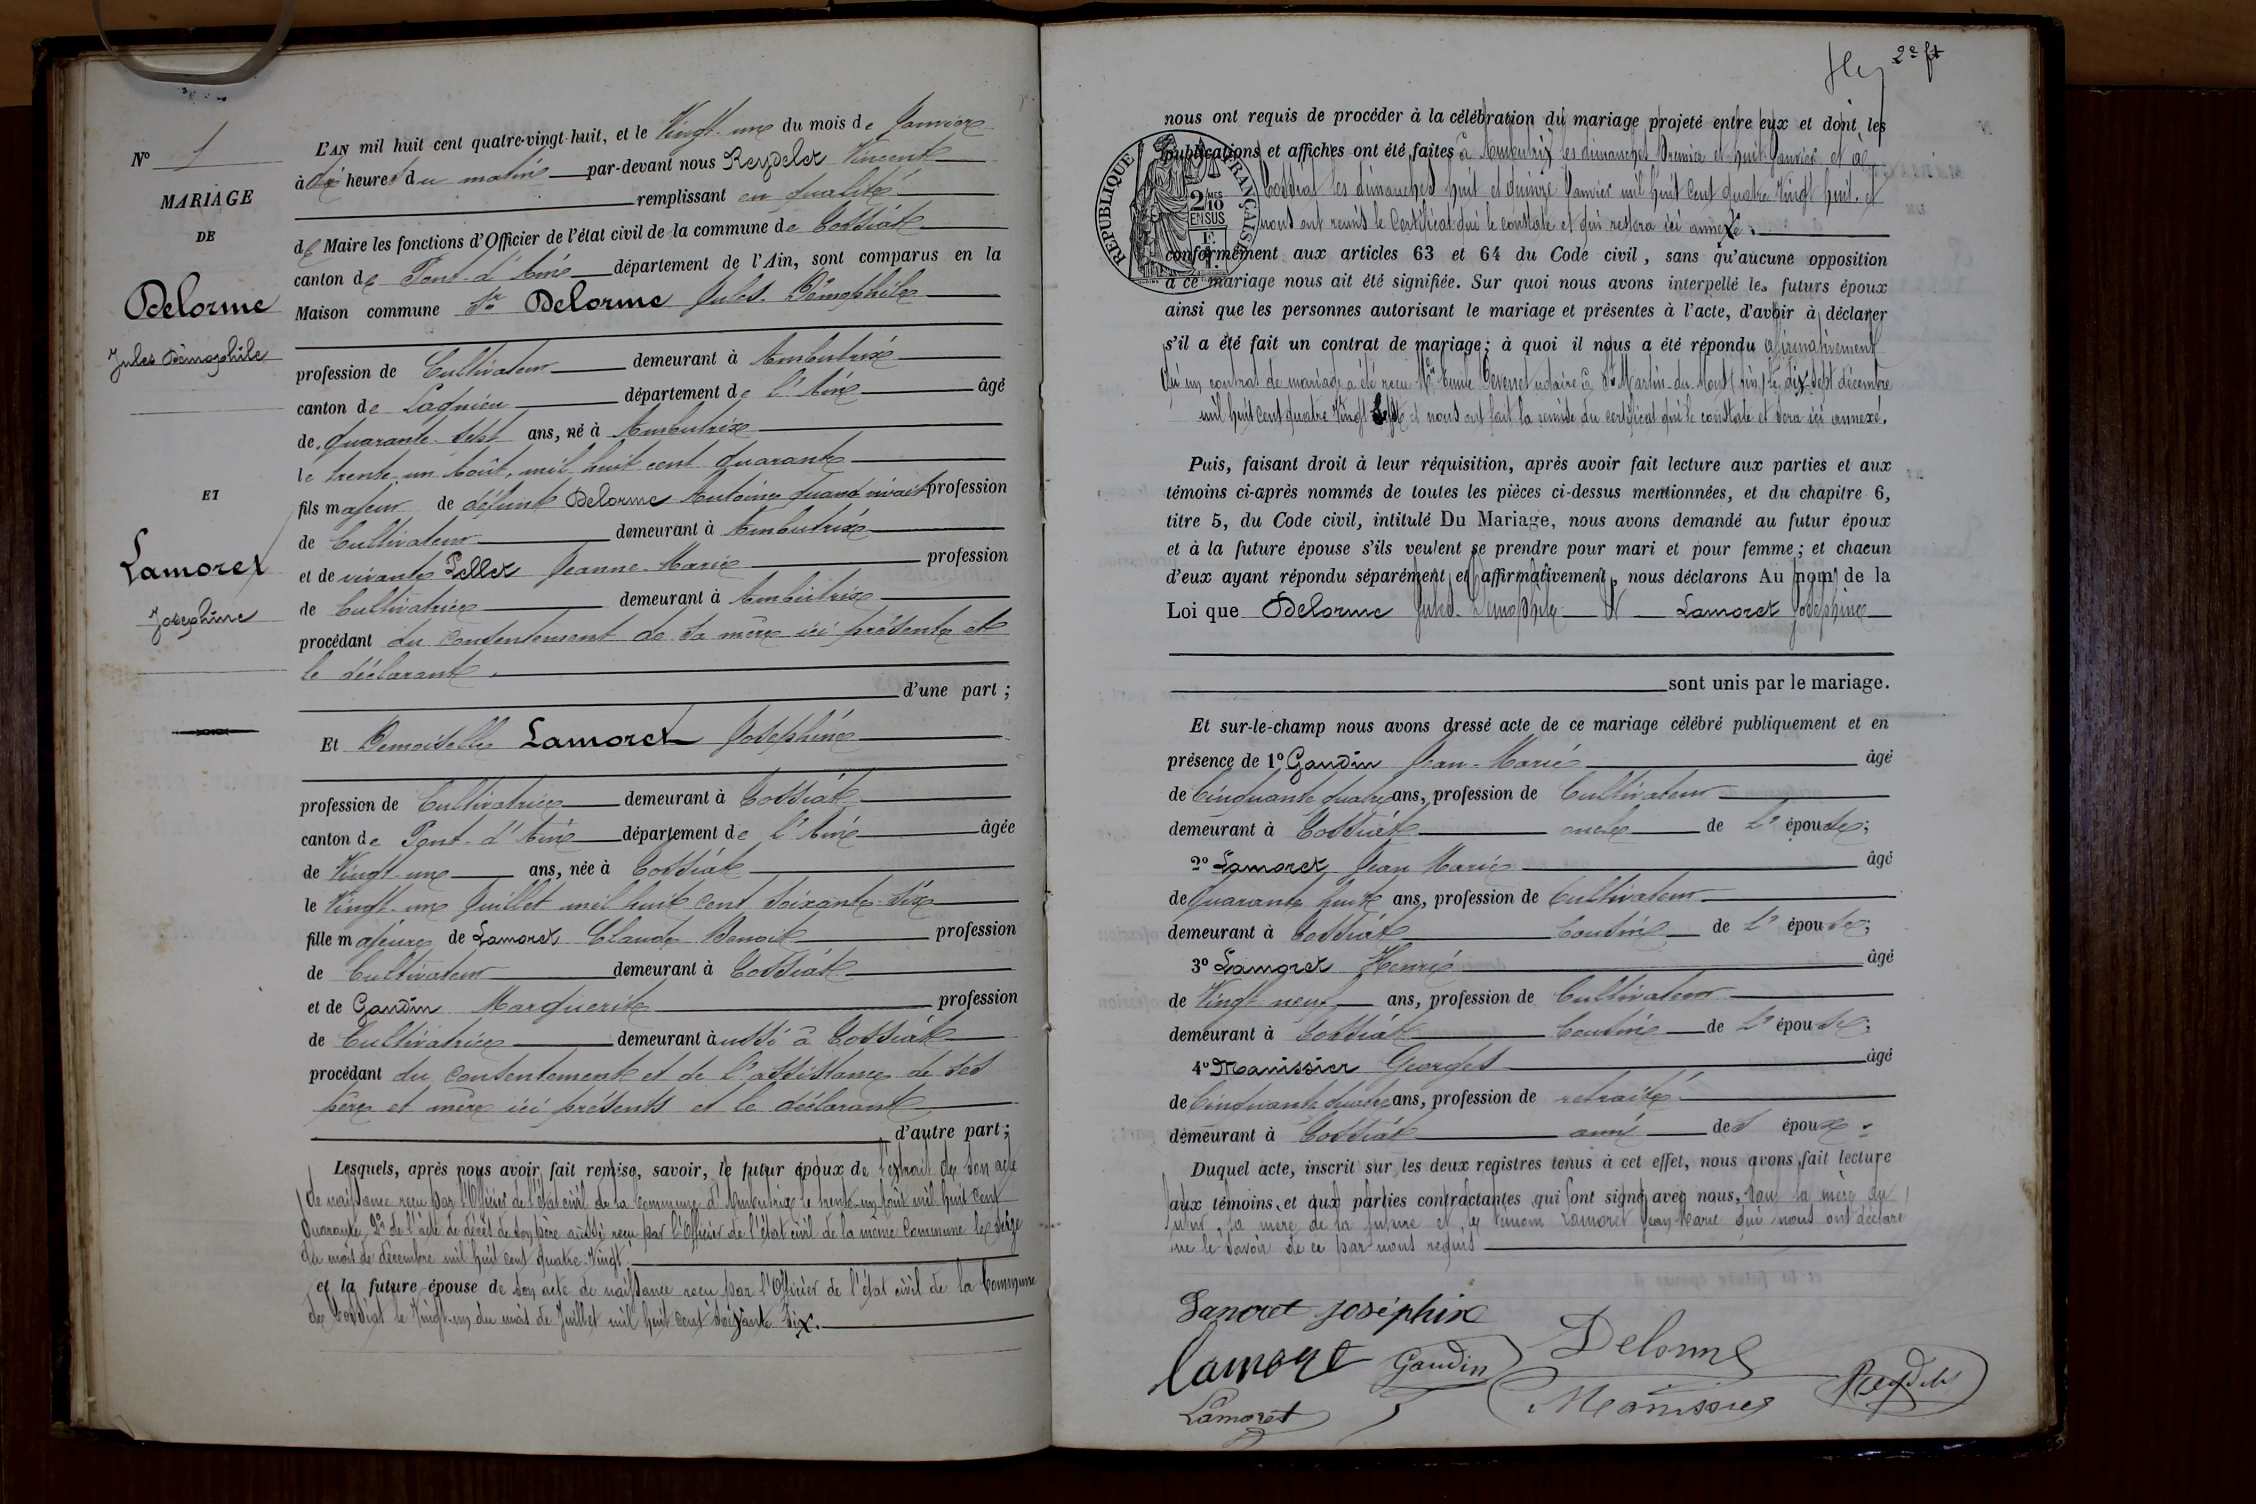 N° 1
MARIAGE
DE
Delorme
Jules Démophile
ET
Lamoret
Joséphine
L'AN mil huit cent quatre-vingt-huit, et le Vingt-un du mois de Janvier
à dix heures du matin par-devant nous Reydelet Vincent
remplissant en qualité
de Maire les fonctions d'Officier de l'état civil de la commune de Bossiat
canton de Pont-d'Ain département de l'Ain, sont comparus en la
Maison commune Sr Delorme Jules Démophile
profession de Cultivateur demeurant à Ambutrix
canton de Lagnieu département de l'Ain âgé
de quarante-sept ans, né à Ambutrix
le trente-un Août, mil huit cent quarante
fils majeur de défunt Delorme Antoine quand vivait profession
de Cultivateur demeurant à Ambutrix
et de vivante Pellet Jeanne-Marie profession
de Cultivatrice demeurant à Ambutrix
procédant du consentement de sa mère ici présente et
le déclarant.
d'une part ;
Et Demoiselle Lamoret Joséphine
profession de Cultivatrice demeurant à Bossiat
canton de Pont-d'Ain département de l'Ain âgée
de Vingt-un ans, née à Bossiat
le Vingt-un Juillet mil huit cent soixante-six
fille majeure de Lamoret Claude Benoit profession
de Cultivateur demeurant à Bossiat
et de Gaudin Marguerite profession
de Cultivatrice demeurant aussi à Bossiat
procédant du consentement et de l'assistance de ses
père et mère ici présents et le déclarant
d'autre part ;
Lesquels, après nous avoir fait remise, savoir, le futur époux de l'extrait de son acte
de naissance reçu par l'Officier de l'état civil de la Commune d'Ambutrix le trente-un Août mil huit cent
quarante, 2° de l'acte de décès de son père aussi reçu par l'Officier de l'état civil de la même Commune le seize
du mois de décembre mil huit cent quatre-Vingt.
et la future épouse de son acte de naissance reçu par l'Officier de l'état civil de la Commune
de Bossiat le Vingt-un du mois de Juillet mil huit cent soixante-six.
2e ft
nous ont requis de procéder à la célébration du mariage projeté entre eux et dont les
publications et affiches ont été faites à Ambutrix les dimanches Premier et huit Janvier et à
Bossiat les dimanches huit et quinze Janvier mil huit cent quatre Vingt huit. et
nous ont remis le Certificat qui le constate et qui restera ici annexé.
REPUBLIQUE FRANÇAISE
2/10 MES
EN SUS
conformément aux articles 63 et 64 du Code civil, sans qu'aucune opposition
à ce mariage nous ait été signifiée. Sur quoi nous avons interpellé les futurs époux
ainsi que les personnes autorisant le mariage et présentes à l'acte, d'avoir à déclarer
s'il a été fait un contrat de mariage ; à quoi il nous a été répondu affirmativement
Qu'un contrat de mariage a été reçu Me Emile notaire à St Martin-du-Mont (Ain) le dix-sept décembre
mil huit cent quatre Vingt Sept et nous ont fait la remise du certificat qui le constate et sera ici annexé.
Puis, faisant droit à leur réquisition, après avoir fait lecture aux parties et aux
témoins ci-après nommés de toutes les pièces ci-dessus mentionnées, et du chapitre 6,
titre 5, du Code civil, intitulé Du Mariage, nous avons demandé au futur époux
et à la future épouse s'ils veulent se prendre pour mari et pour femme ; et chacun
d'eux ayant répondu séparément et affirmativement, nous déclarons Au nom de la
Loi que Delorme Jules Démophile Et Lamoret Joséphine
sont unis par le mariage.
Et sur-le-champ nous avons dressé acte de ce mariage célébré publiquement et en
présence de 1° Gaudin Jean-Marie âgé
de Cinquante quatre ans, profession de Cultivateur
demeurant à Bossiat oncle de l'épouse ;
2° Lamoret Jean Marie âgé
de quarante huit ans, profession de Cultivateur
demeurant à Bossiat Cousin de l'épouse ;
3° Lamoret Henri âgé
de Vingt neuf ans, profession de Cultivateur
demeurant à Bossiat Cousin de l'épouse ;
4° Manissier Georges âgé
de Cinquante quatre ans, profession de retraité
demeurant à Bossiat ami des époux.
Duquel acte, inscrit sur les deux registres tenus à cet effet, nous avons fait lecture
aux témoins et aux parties contractantes qui ont signé avec nous, sauf la mère du
futur, la mère de la future et le témoin Lamoret Jean Marie qui nous ont déclaré
ne le savoir de ce par nous requis
Lamoret joséphine
Lamoret Gaudin Delorme
Lamoret Manissier Reydelet